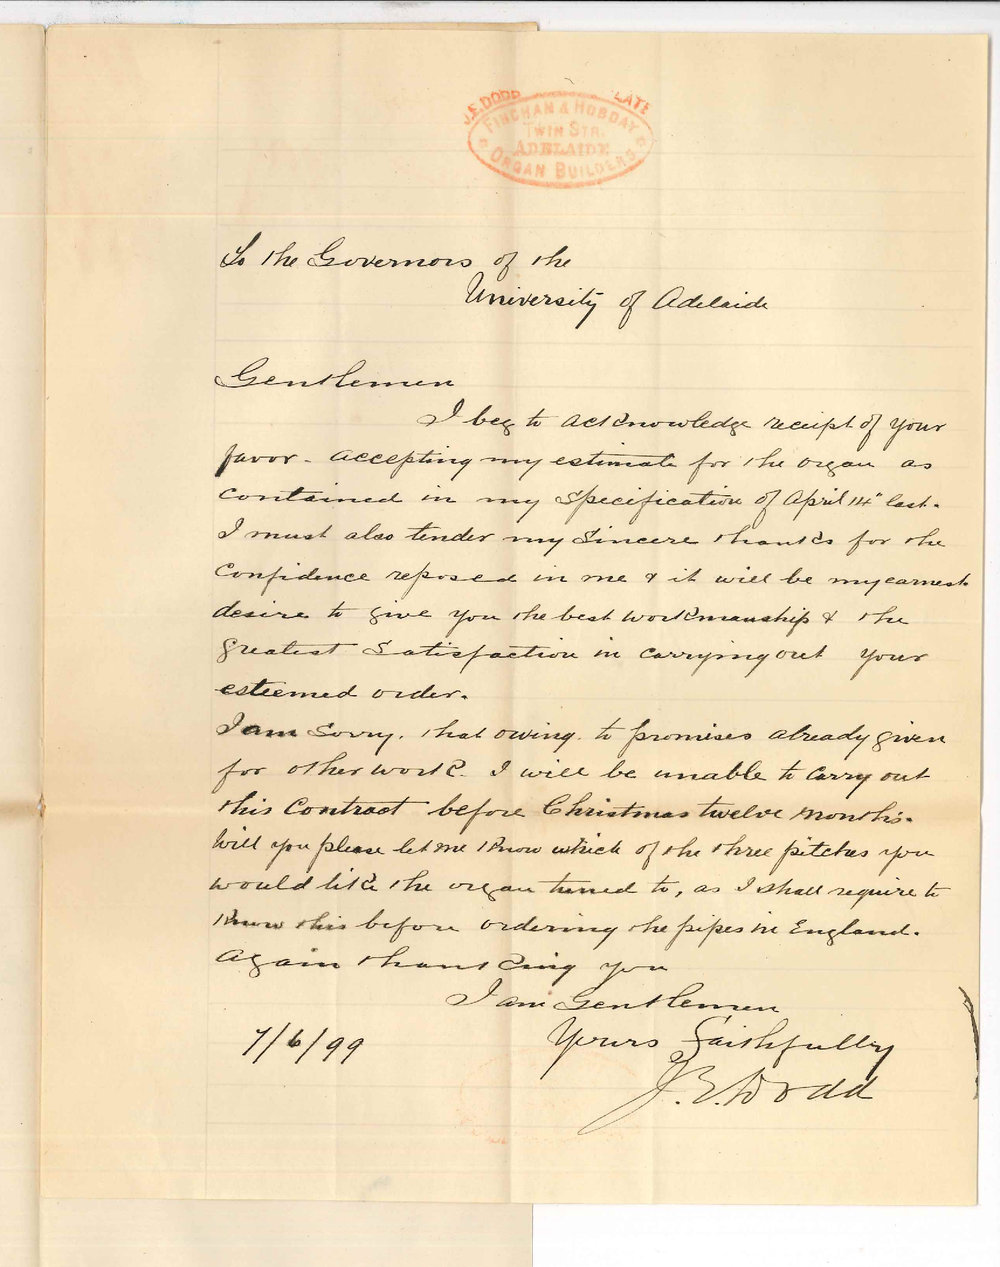 J.E. DODD LATE
FINCHAN & HOBDAY
TWIN STR.
ADELAIDE
ORGAN BUILDERS
To the Governors of the
University of Adelaide
Gentlemen
I beg to acknowledge receipt of your
favor - accepting my estimate for the organ as
contained in my specification of April 14" last.
I must also tender my sincere thanks for the
confidence reposed in me & it will be my earnest
desire to give you the best workmanship & the
greatest satisfaction in carrying out your
esteemed order.
I am sorry, that owing to promises already given
for other work. I will be unable to carry out
this contract before Christmas twelve months.
Will you please let me know which of the three pitches you
would like the organ tuned to, as I shall require to
know this before ordering the pipes in England.
Again thanking you
I am Gentlemen
Yours Faithfully
7/6/99
J. E. Dodd